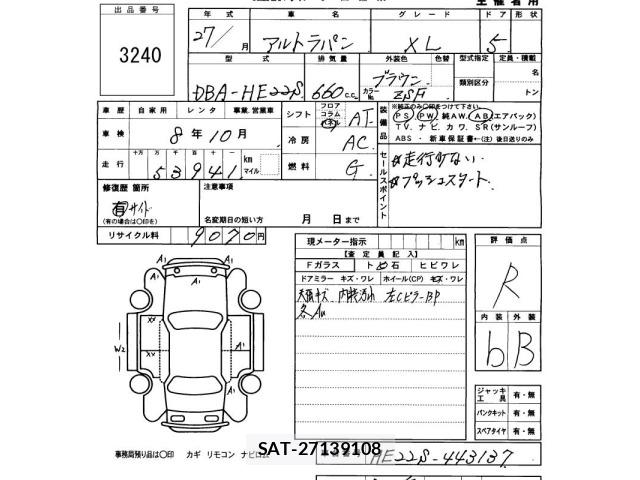 出品番号
3240
年式 車名 グレード ドア 形状
27/ アルトラパン XL 5
型式 排気量 外装色 色替 型式指定 定員・積載
DBA-HE22S 660 c.c. ブラウン カラーNo. ZSF 類別区分 名 トン
車歴 自家用 レンタ 事業.営業車
車検 8年10月
走行 十万 万 千 百 十 一
53941 km マイル
シフト フロア コラム パネル AT
冷房 AC
燃料 G
装備品
※純正のみ○印をつけて下さい。
PS PW 純AW. AB(エアバック)
TV. ナビ. カワ. SR(サンルーフ)
ABS・新車保証書←(注)後日送りのみ
セールスポイント
☆走行少ない.
☆プッシュスタート.
修復歴 箇所
有 サイド
(有の場合は○印を)
注意事項
名変期日の短い方 月 日まで
リサイクル料 9070円
現メーター指示 km
【査定員記入】
Fガラス トビ石 ヒビワレ
ドアミラー キズ・ワレ ホイール(CP) キズ・ワレ
天張キズ 内装汚れ 左CピラーBP
各AU
評価点
R
内装 外装
b B
ジャッキ工具 有・無
パンクキット 有・無
スペアタイヤ 有・無
A1
A1 A1
XX
W2
XX A1
A1
事務局預り品は○印 カギ リモコン
SAT-27139108
HE22S-443137